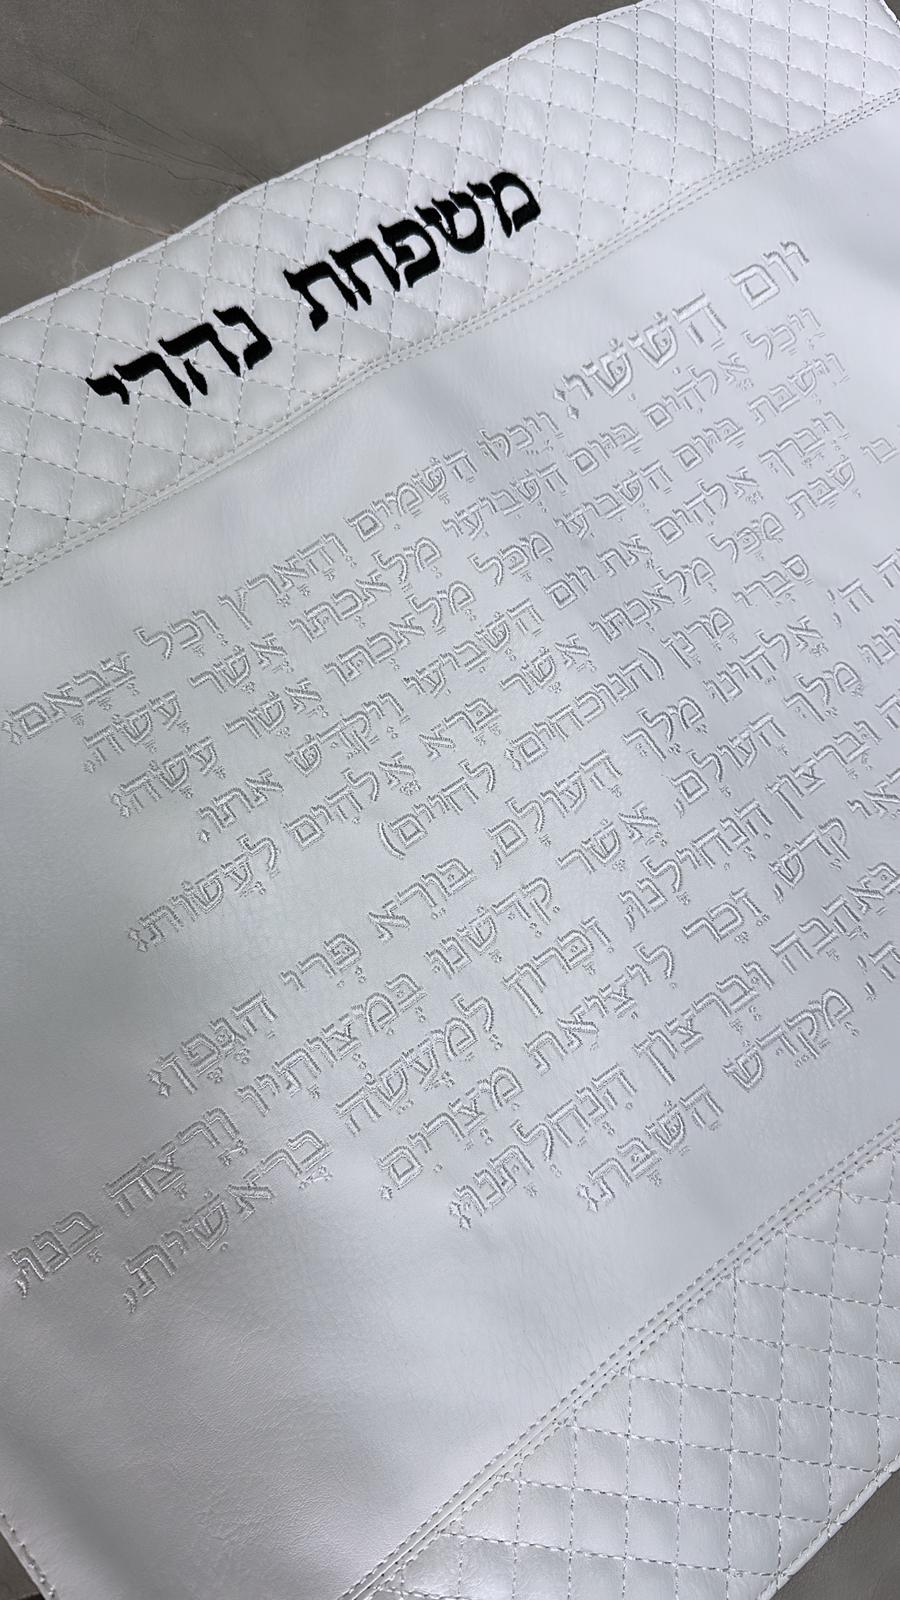 משפחת נהרי
יוֹם הַשִּׁשִּׁי: וַיְכֻלּוּ הַשָּׁמַיִם וְהָאָרֶץ וְכָל צְבָאָם:
וַיְכַל אֱלֹהִים בַּיּוֹם הַשְּׁבִיעִי מְלַאכְתּוֹ אֲשֶׁר עָשָׂה,
וַיִּשְׁבֹּת בַּיּוֹם הַשְּׁבִיעִי מִכָּל מְלַאכְתּוֹ אֲשֶׁר עָשָׂה:
וַיְבָרֶךְ אֱלֹהִים אֶת יוֹם הַשְּׁבִיעִי וַיְקַדֵּשׁ אֹתוֹ.
בוֹ שָׁבַת מִכָּל מְלַאכְתּוֹ אֲשֶׁר בָּרָא אֱלֹהִים לַעֲשׂוֹת:
סַבְרִי מָרָנָן (הנוכחים: לחיים)
ה', אֱלֹהֵינוּ מֶלֶךְ הָעוֹלָם, בּוֹרֵא פְּרִי הַגֶּפֶן:
מֶלֶךְ הָעוֹלָם, אֲשֶׁר קִדְּשָׁנוּ בְּמִצְוֹתָיו וְרָצָה בָנוּ,
וּבְרָצוֹן הִנְחִילָנוּ, זִכָּרוֹן לְמַעֲשֵׂה בְרֵאשִׁית,
קֹדֶשׁ, זֵכֶר לִיצִיאַת מִצְרַיִם.
בְּאַהֲבָה וּבְרָצוֹן הִנְחַלְתָּנוּ:
ה', מְקַדֵּשׁ הַשַּׁבָּת: